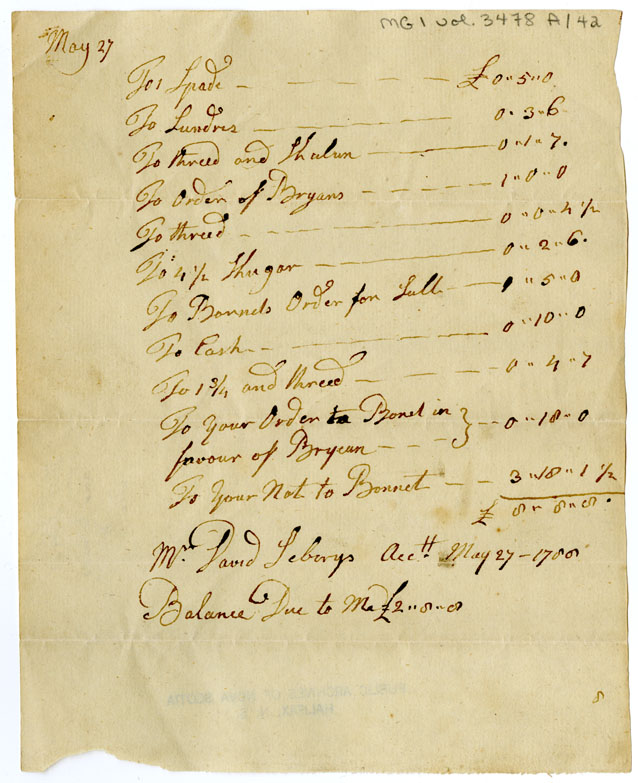 MG 1 vol. 3478 A/42
May 27
To 1 Spade — — — — £ 0" 5" 0
To Sundres — — — — 0" 3" 6
To threed and Shalun — 0" 1" 7.
To Order of Bryans — — 1" 0" 0
To threed — — — — 0" 0" 4 1/2
To 4 1/2 Shugar — 0" 2" 6.
To Bonnets Order for Sall — 1" 5" 0
To Cash — — — 0" 10" 0
To 1 3/4 and threed — — — 0" 4" 7
To Your Order to Bonet in } — 0" 18" 0
favour of Bryean — — —
To Your Not to Bonnet — — 3" 18" 1 1/2
£ 8" 8" 8.
Mr. David Seborys Acctt. May 27 - 1788
Balance Due to Me £2"8"8
PUBLIC ARCHIVES OF NOVA SCOTIA
HALIFAX, N. S.
8